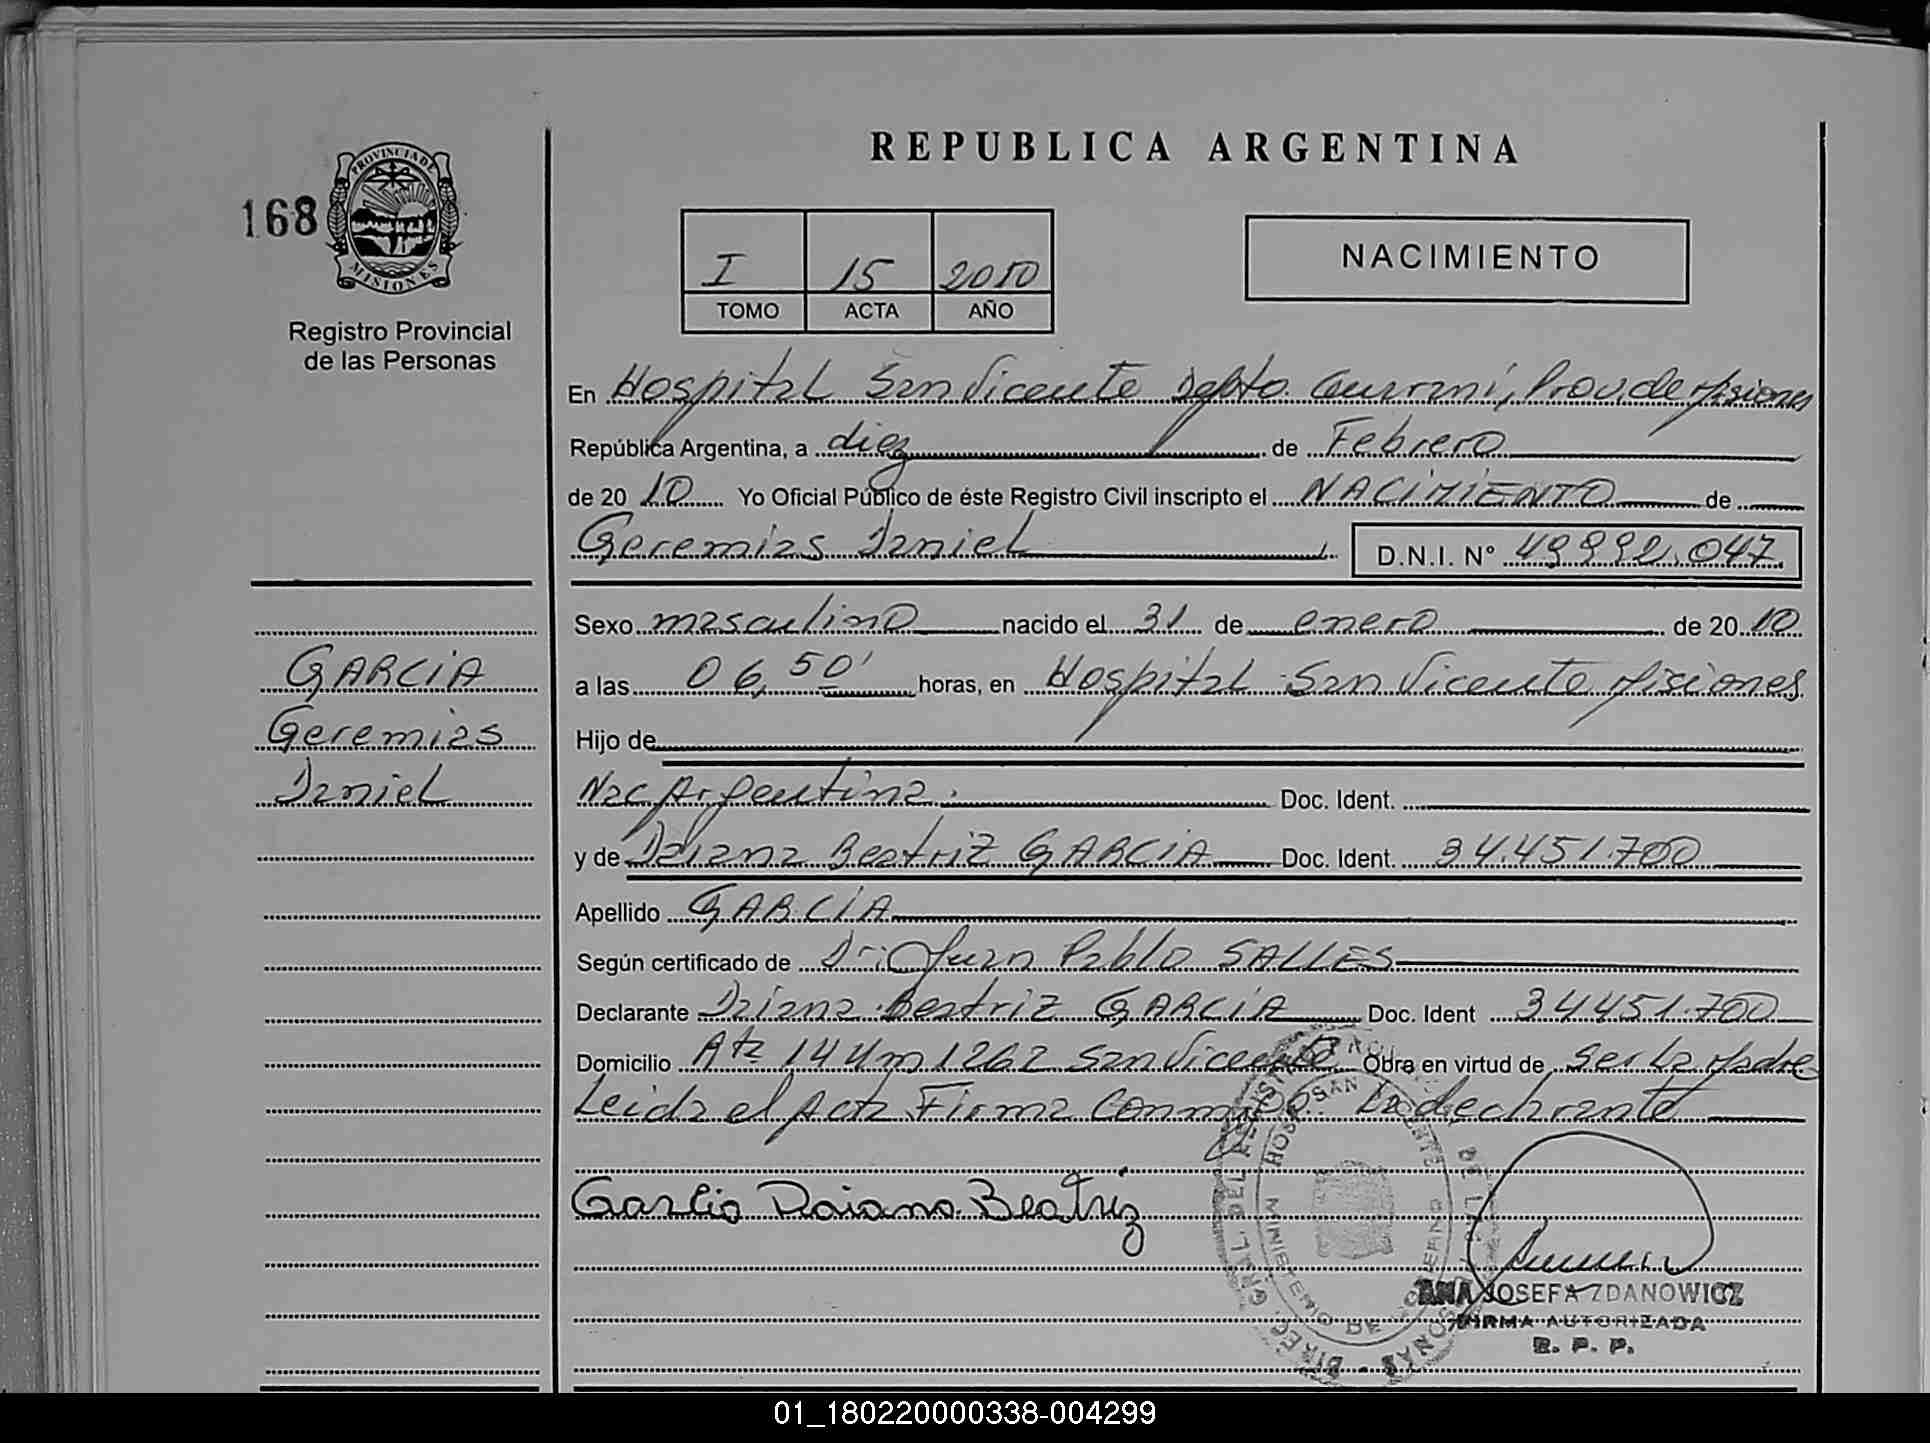 REPUBLICA ARGENTINA
168
PROVINCIA DE
MISIONES
Registro Provincial
de las Personas
I 15 2010
TOMO ACTA AÑO
NACIMIENTO
En Hospital San Vicente Depto. Guarani, Prov. de Misiones
República Argentina, a diez de Febrero
de 20 10 Yo Oficial Público de éste Registro Civil inscripto el NACIMIENTO de
Geremias Daniel D.N.I. N° 49992.047
Sexo masculino nacido el 31 de enero de 20 10
GARCIA
Geremias
Daniel
a las 06,50' horas, en Hospital San Vicente Misiones
Hijo de
Nac Argentina. Doc. Ident.
y de Daiana Beatriz GARCIA Doc. Ident. 34.451.700
Apellido GARCIA
Según certificado de Dr: Juan Pablo SALLES
Declarante Daiana Beatriz GARCIA Doc. Ident 34451.700
Domicilio Atz 144m 1262 San Vicente Obra en virtud de ser la Madre
Leida el Acta Firma conmigo La declarante
Garcia Daiana Beatriz
HOSP. SAN VICENTE
MINISTERIO DE
ANA JOSEFA ZDANOWICZ
FIRMA AUTORIZADA
R. P. P.
01_180220000338-004299